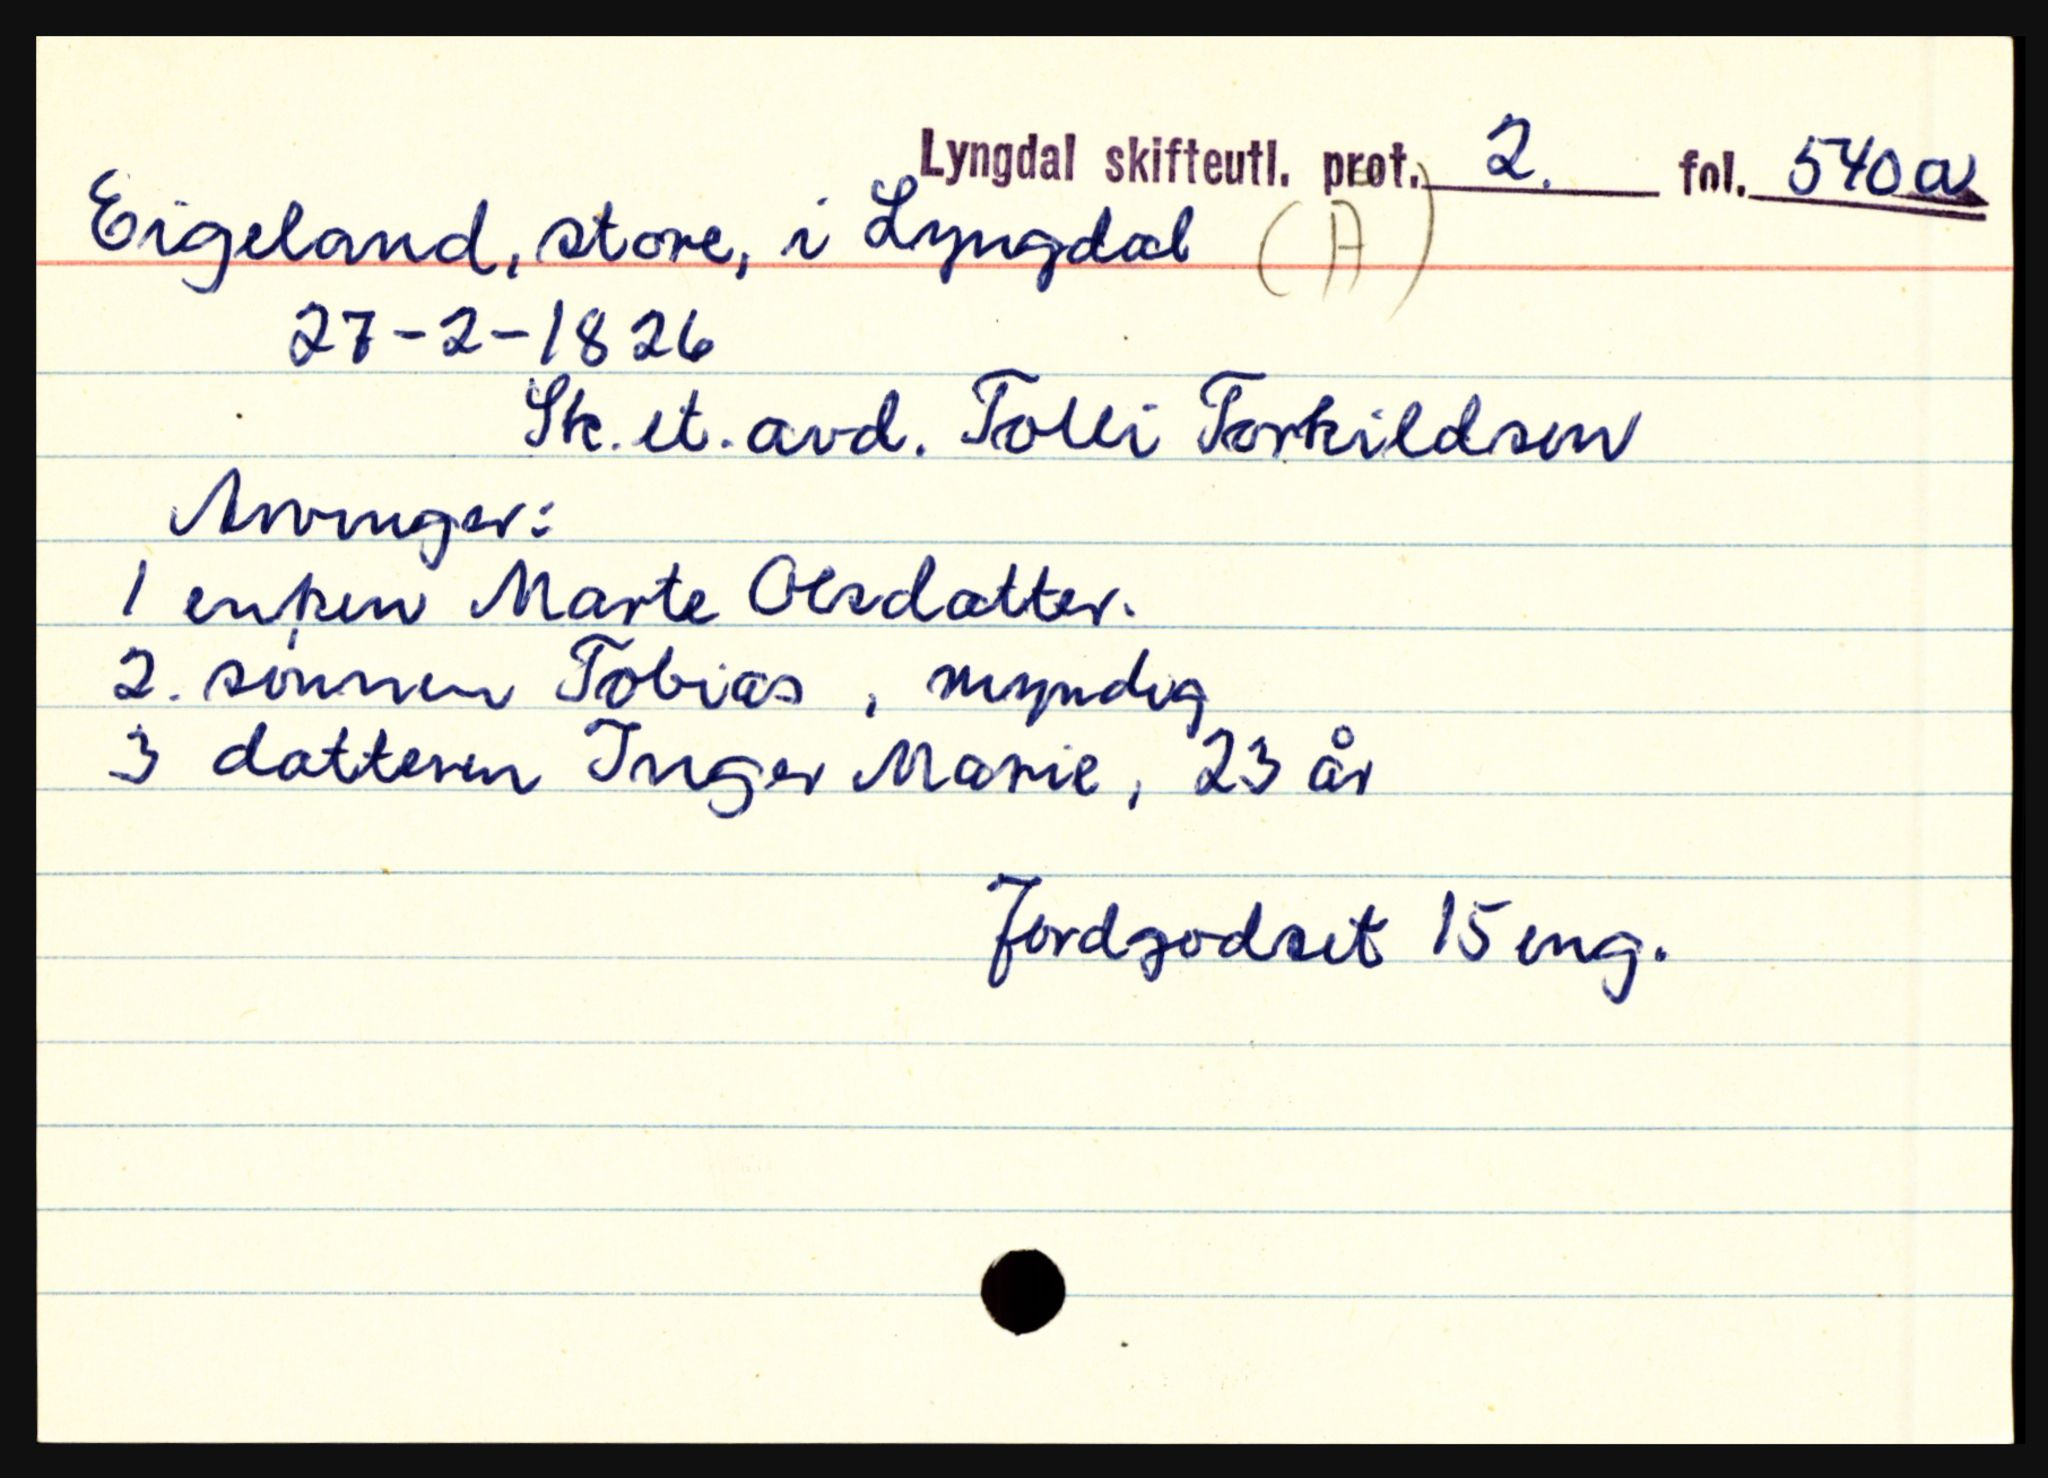 Lyngdal skifteutl. prot. 2. fol. 540a
Eigeland, store, i Lyngdal (A)
27-2-1826
Sk. et. avd. Tolli Torkildsen
Arvinger:
1 enken Marte Olsdatter.
2. sønnen Tobias, myndig
3 datteren Inger Marie, 23 år
Jordgodset 15 eng.